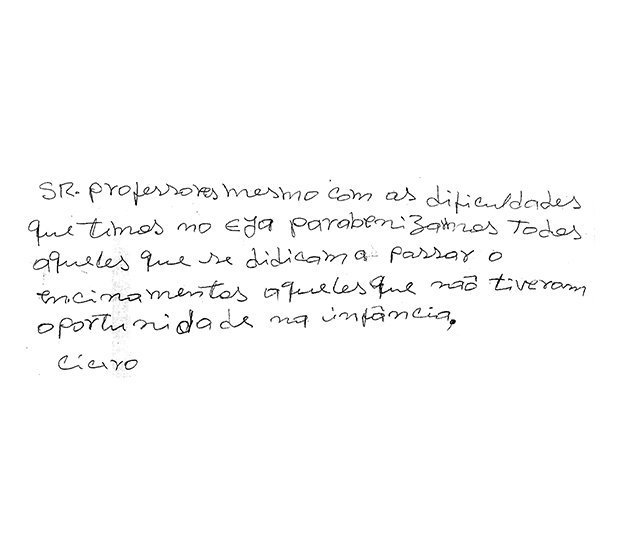 SR. professores mesmo com as dificuldades
que timos no EJA parabenizamos Todos
aqueles que se didicam a passar o
encinamentos aqueles que não tiveram
oportunidade na infância,
Cicero